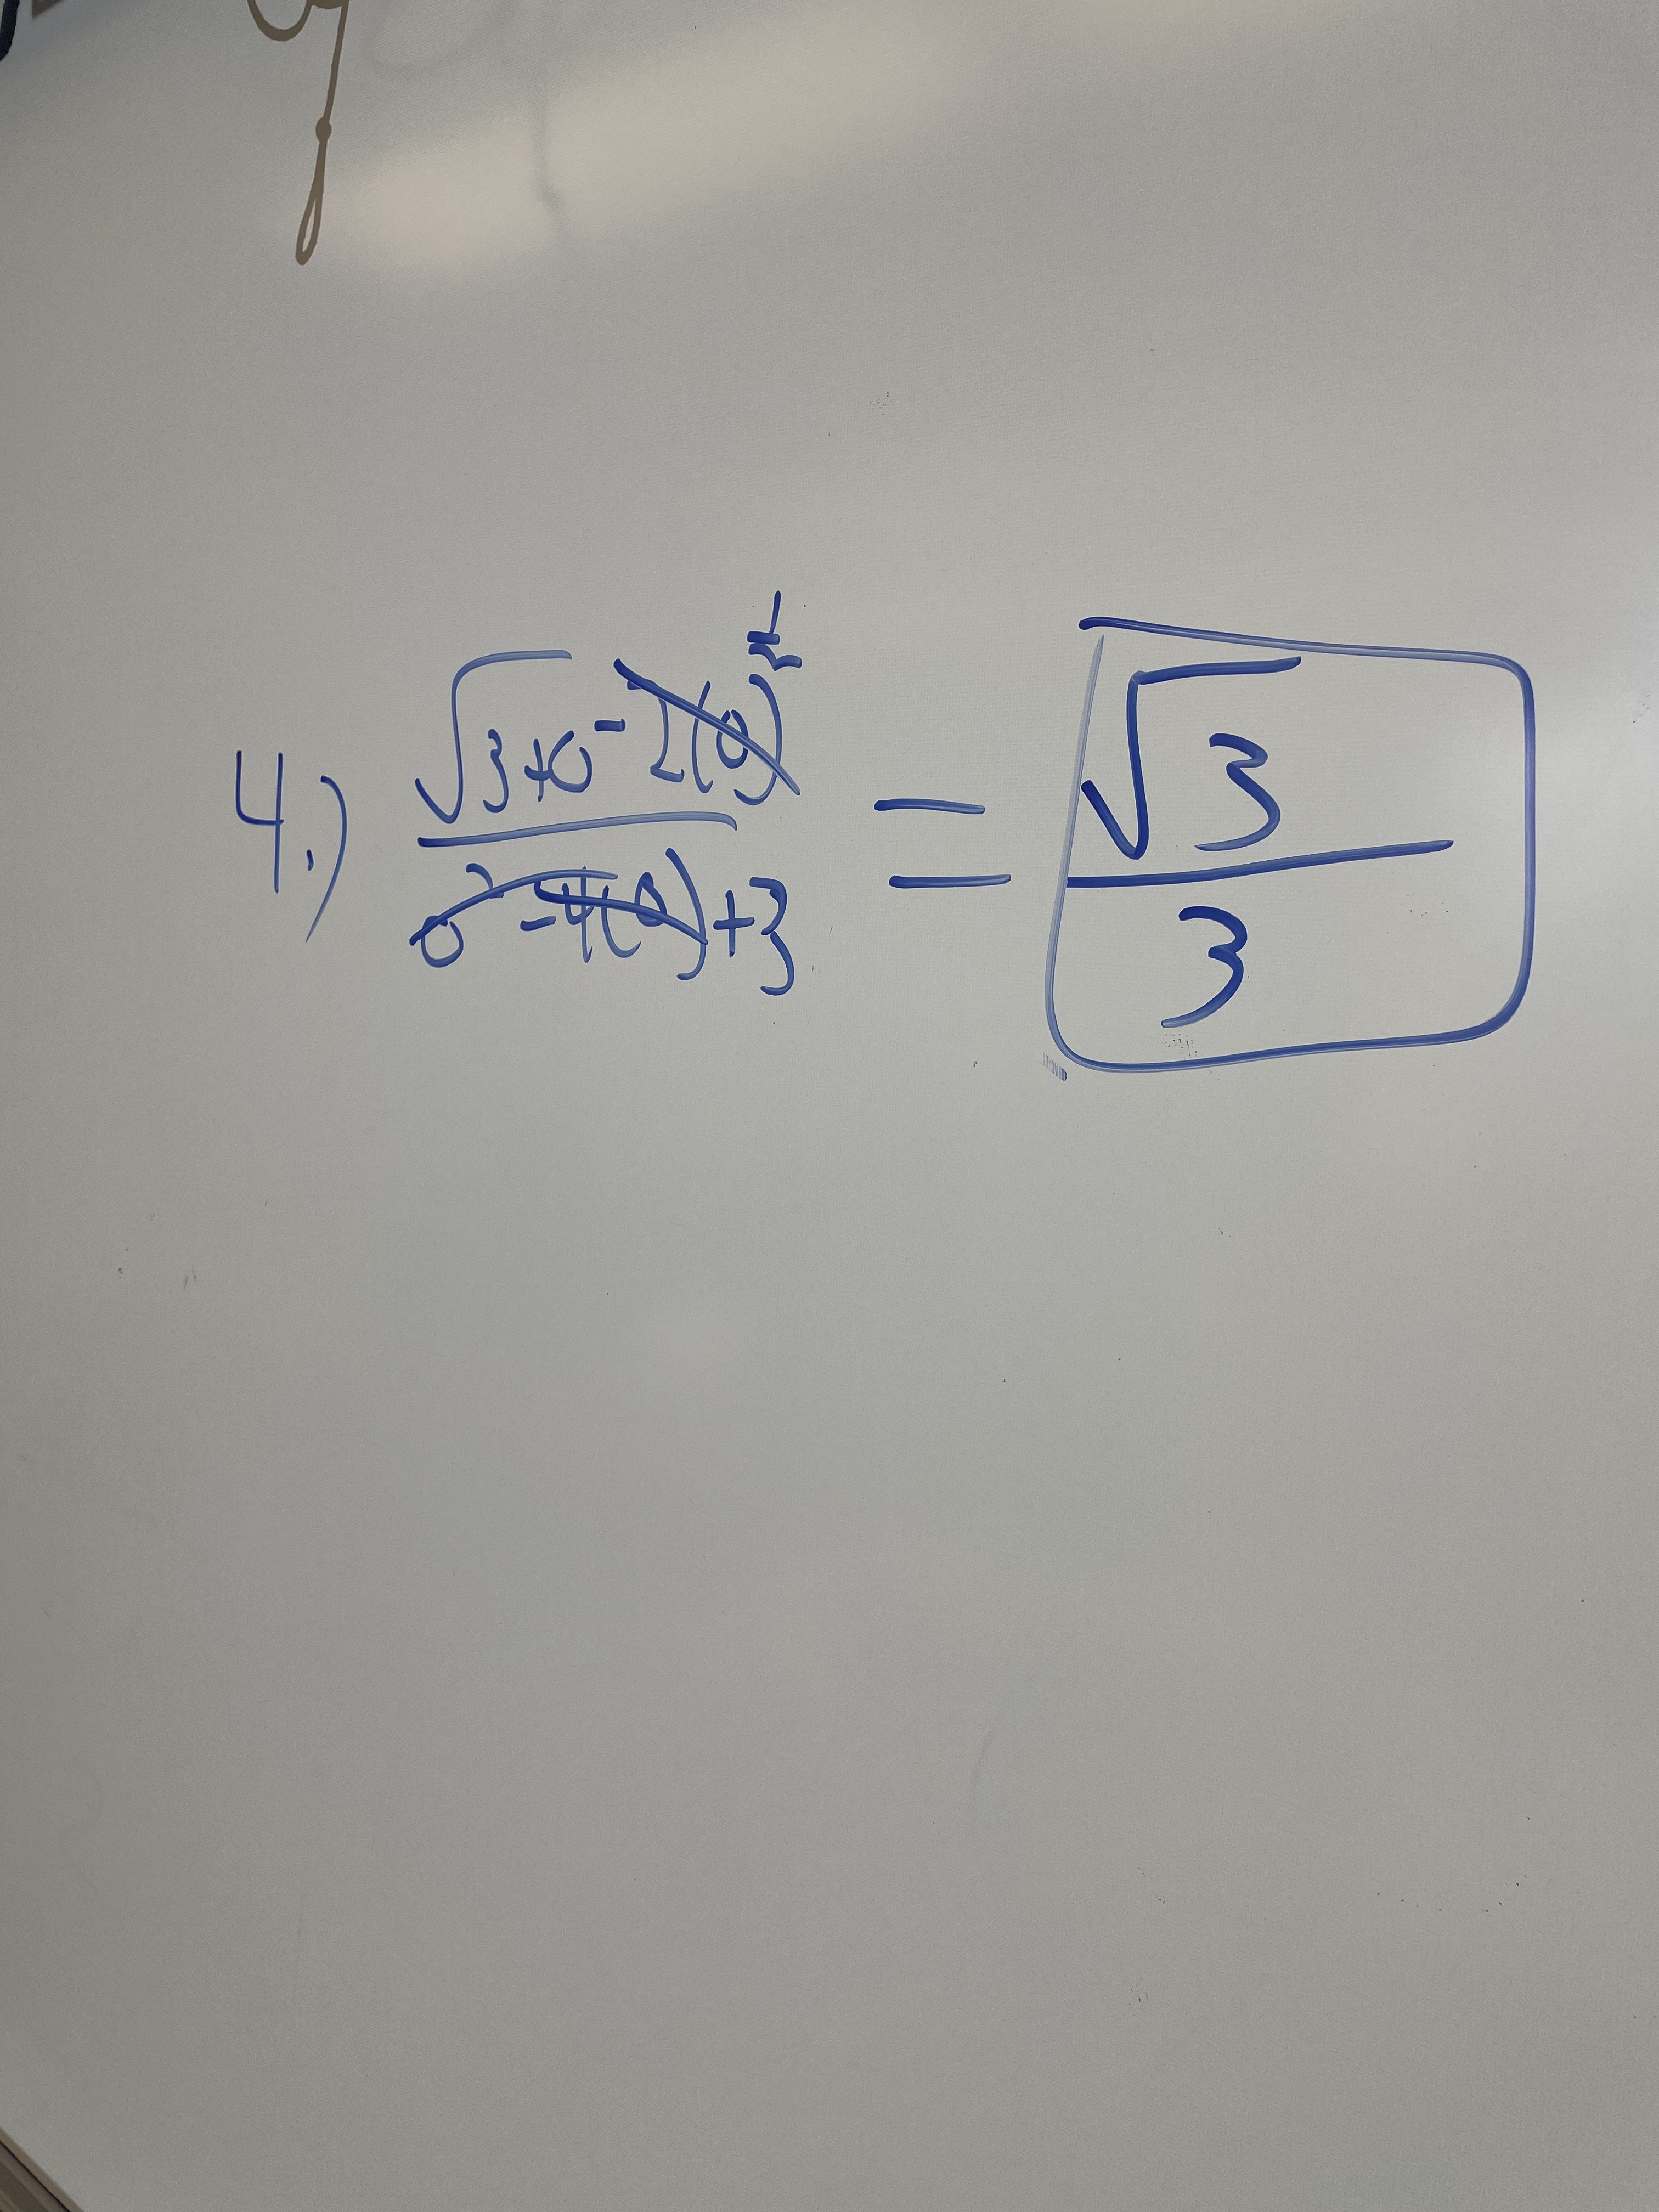 4.) √3+0 - 2(0)^½ / 0² - 4(0) + 3 = √3 / 3